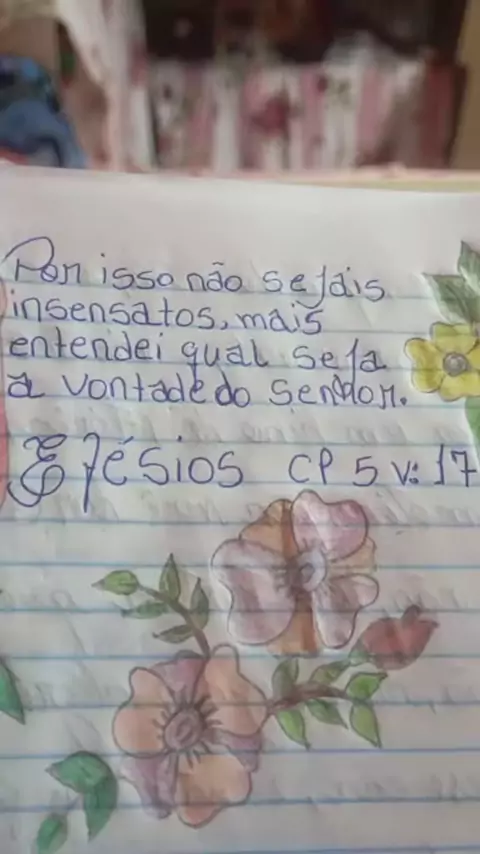 Por isso não sejais
insensatos, mais
entendei qual seja
a vontade do Senhor.
Efésios CP 5 v: 17